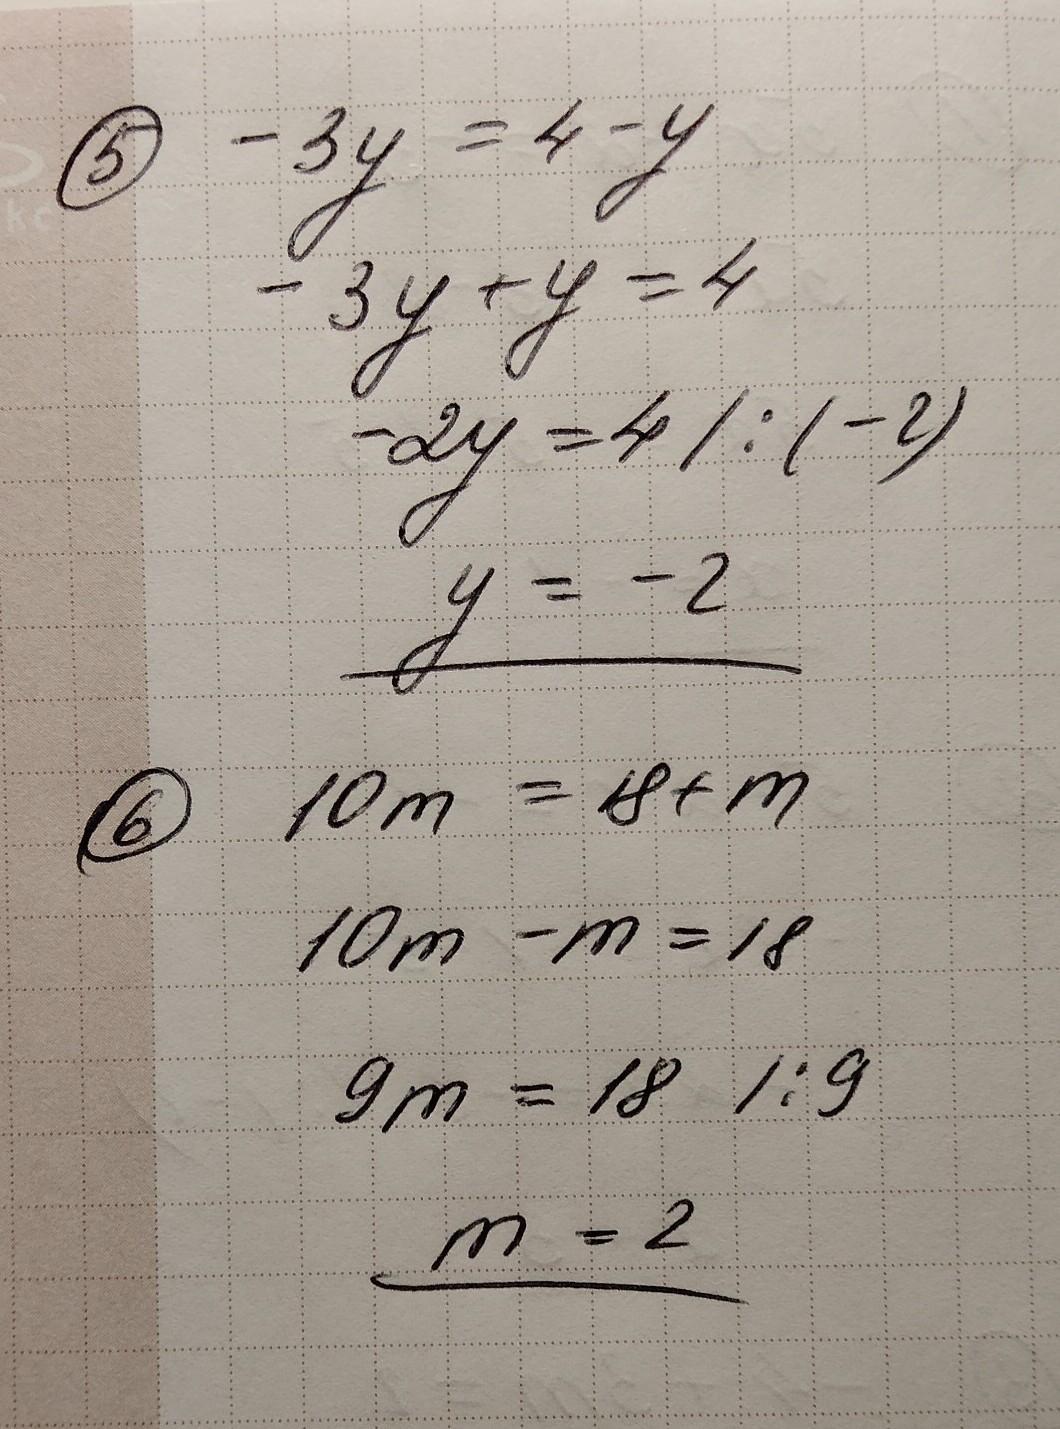 5 -3y = 4 - y
-3y + y = 4
-2y = 4 / : (-2)
y = -2
6 10m = 18 + m
10m - m = 18
9m = 18 / : 9
m = 2